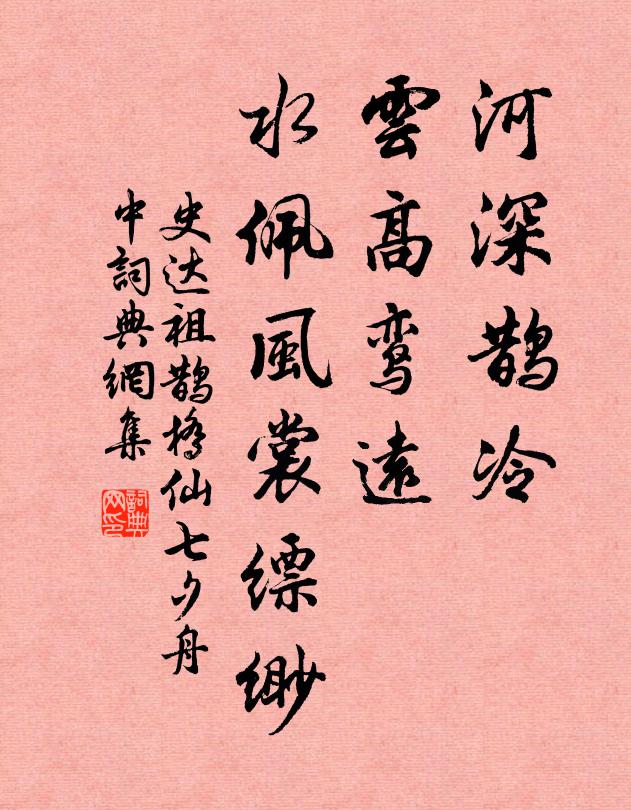 河深鹊冷
雲高鸾遠
水佩風裳缥緲
史达祖鹊橋仙七夕舟
中詞典網集
詞典
网印